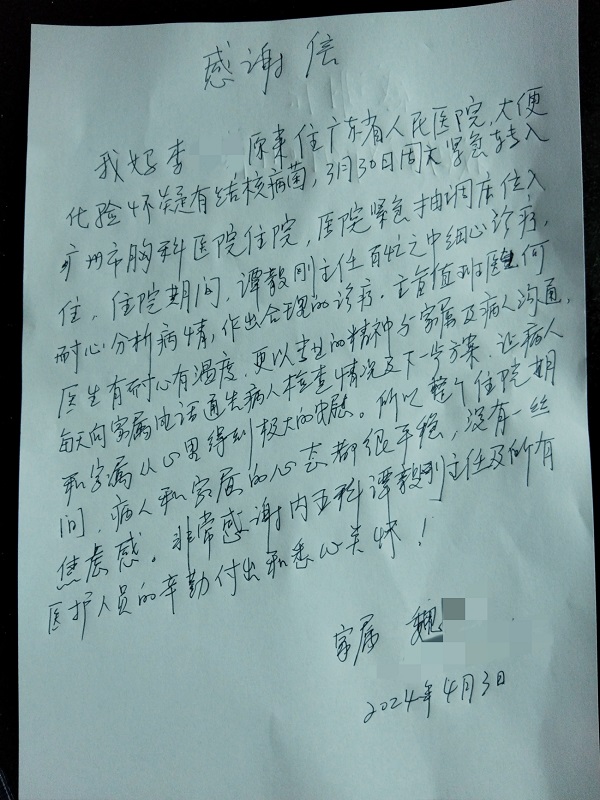 感谢信
我妈李 原来住广东省人民医院,大便
化验怀疑有结核病菌,3月30日周六紧急转入
广州市胸科医院住院,医院紧急抽调床位入
住,住院期间,谭毅刚主任百忙之中细心诊疗,
耐心分析病情,作出合理的诊疗.主管值班医生何
医生有耐心有温度,更以专业的精神与家属及病人沟通,
每天向家属电话通告病人检查情况及下一步方案,让病人
和家属从心里得到极大的安慰。所以整个住院期
间,病人和家属的心态都很平稳,没有一丝
焦虑感。非常感谢内五科谭毅刚主任及所有
医护人员的辛勤付出和悉心关怀!
家属 魏
2024年4月3日